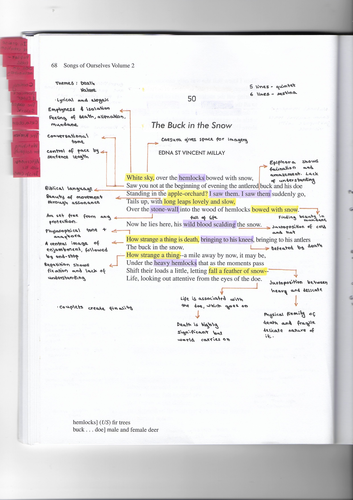 68 Songs of Ourselves Volume 2
THEMES: Death
Nature
Lyrical and elegaic
Emptyness & isolation
Feeling of death, alienation,
mundane
Conversational
tone
Control of pace by
sentence length
5 lines - quintet
6 lines - sestina
50
The Buck in the Snow
Caesura gives space for imaging
EDNA ST VINCENT MILLAY
Epiphora shows
fascination and
amazement. Lack
of understanding
Biblical language
Beauty of movement
through assonance
White sky, over the hemlocks bowed with snow,
Saw you not at the beginning of evening the antlered buck and his doe
Standing in the apple-orchard? I saw them. I saw them suddenly go,
Tails up, with long leaps lovely and slow,
Over the stone-wall into the wood of hemlocks bowed with snow.
An act free from any
protection.
Full of life
Finding beauty in
mundane
Now he lies here, his wild blood scalding the snow.
Juxtaposition of cold
and hot
Physiological tone +
anaphora
How strange a thing is death, bringing to his knees, bringing to his antlers
Defeated by death
The buck in the snow.
A central image of
enjambment, followed
by end-stop
How strange a thing—a mile away by now, it may be,
Under the heavy hemlocks that as the moments pass
Repetition shows
fixation and lack of
understanding
Shift their loads a little, letting fall a feather of snow—
Life, looking out attentive from the eyes of the doe.
Juxtaposition between
heavy and delicate
Couplets create finality
Life is associated with
the doe, which goes on
Death is highly
significant but
world carries on
Physical finality of
death and fragile
delicate nature of
it.
hemlocks] (US) fir trees
buck . . . doe] male and female deer